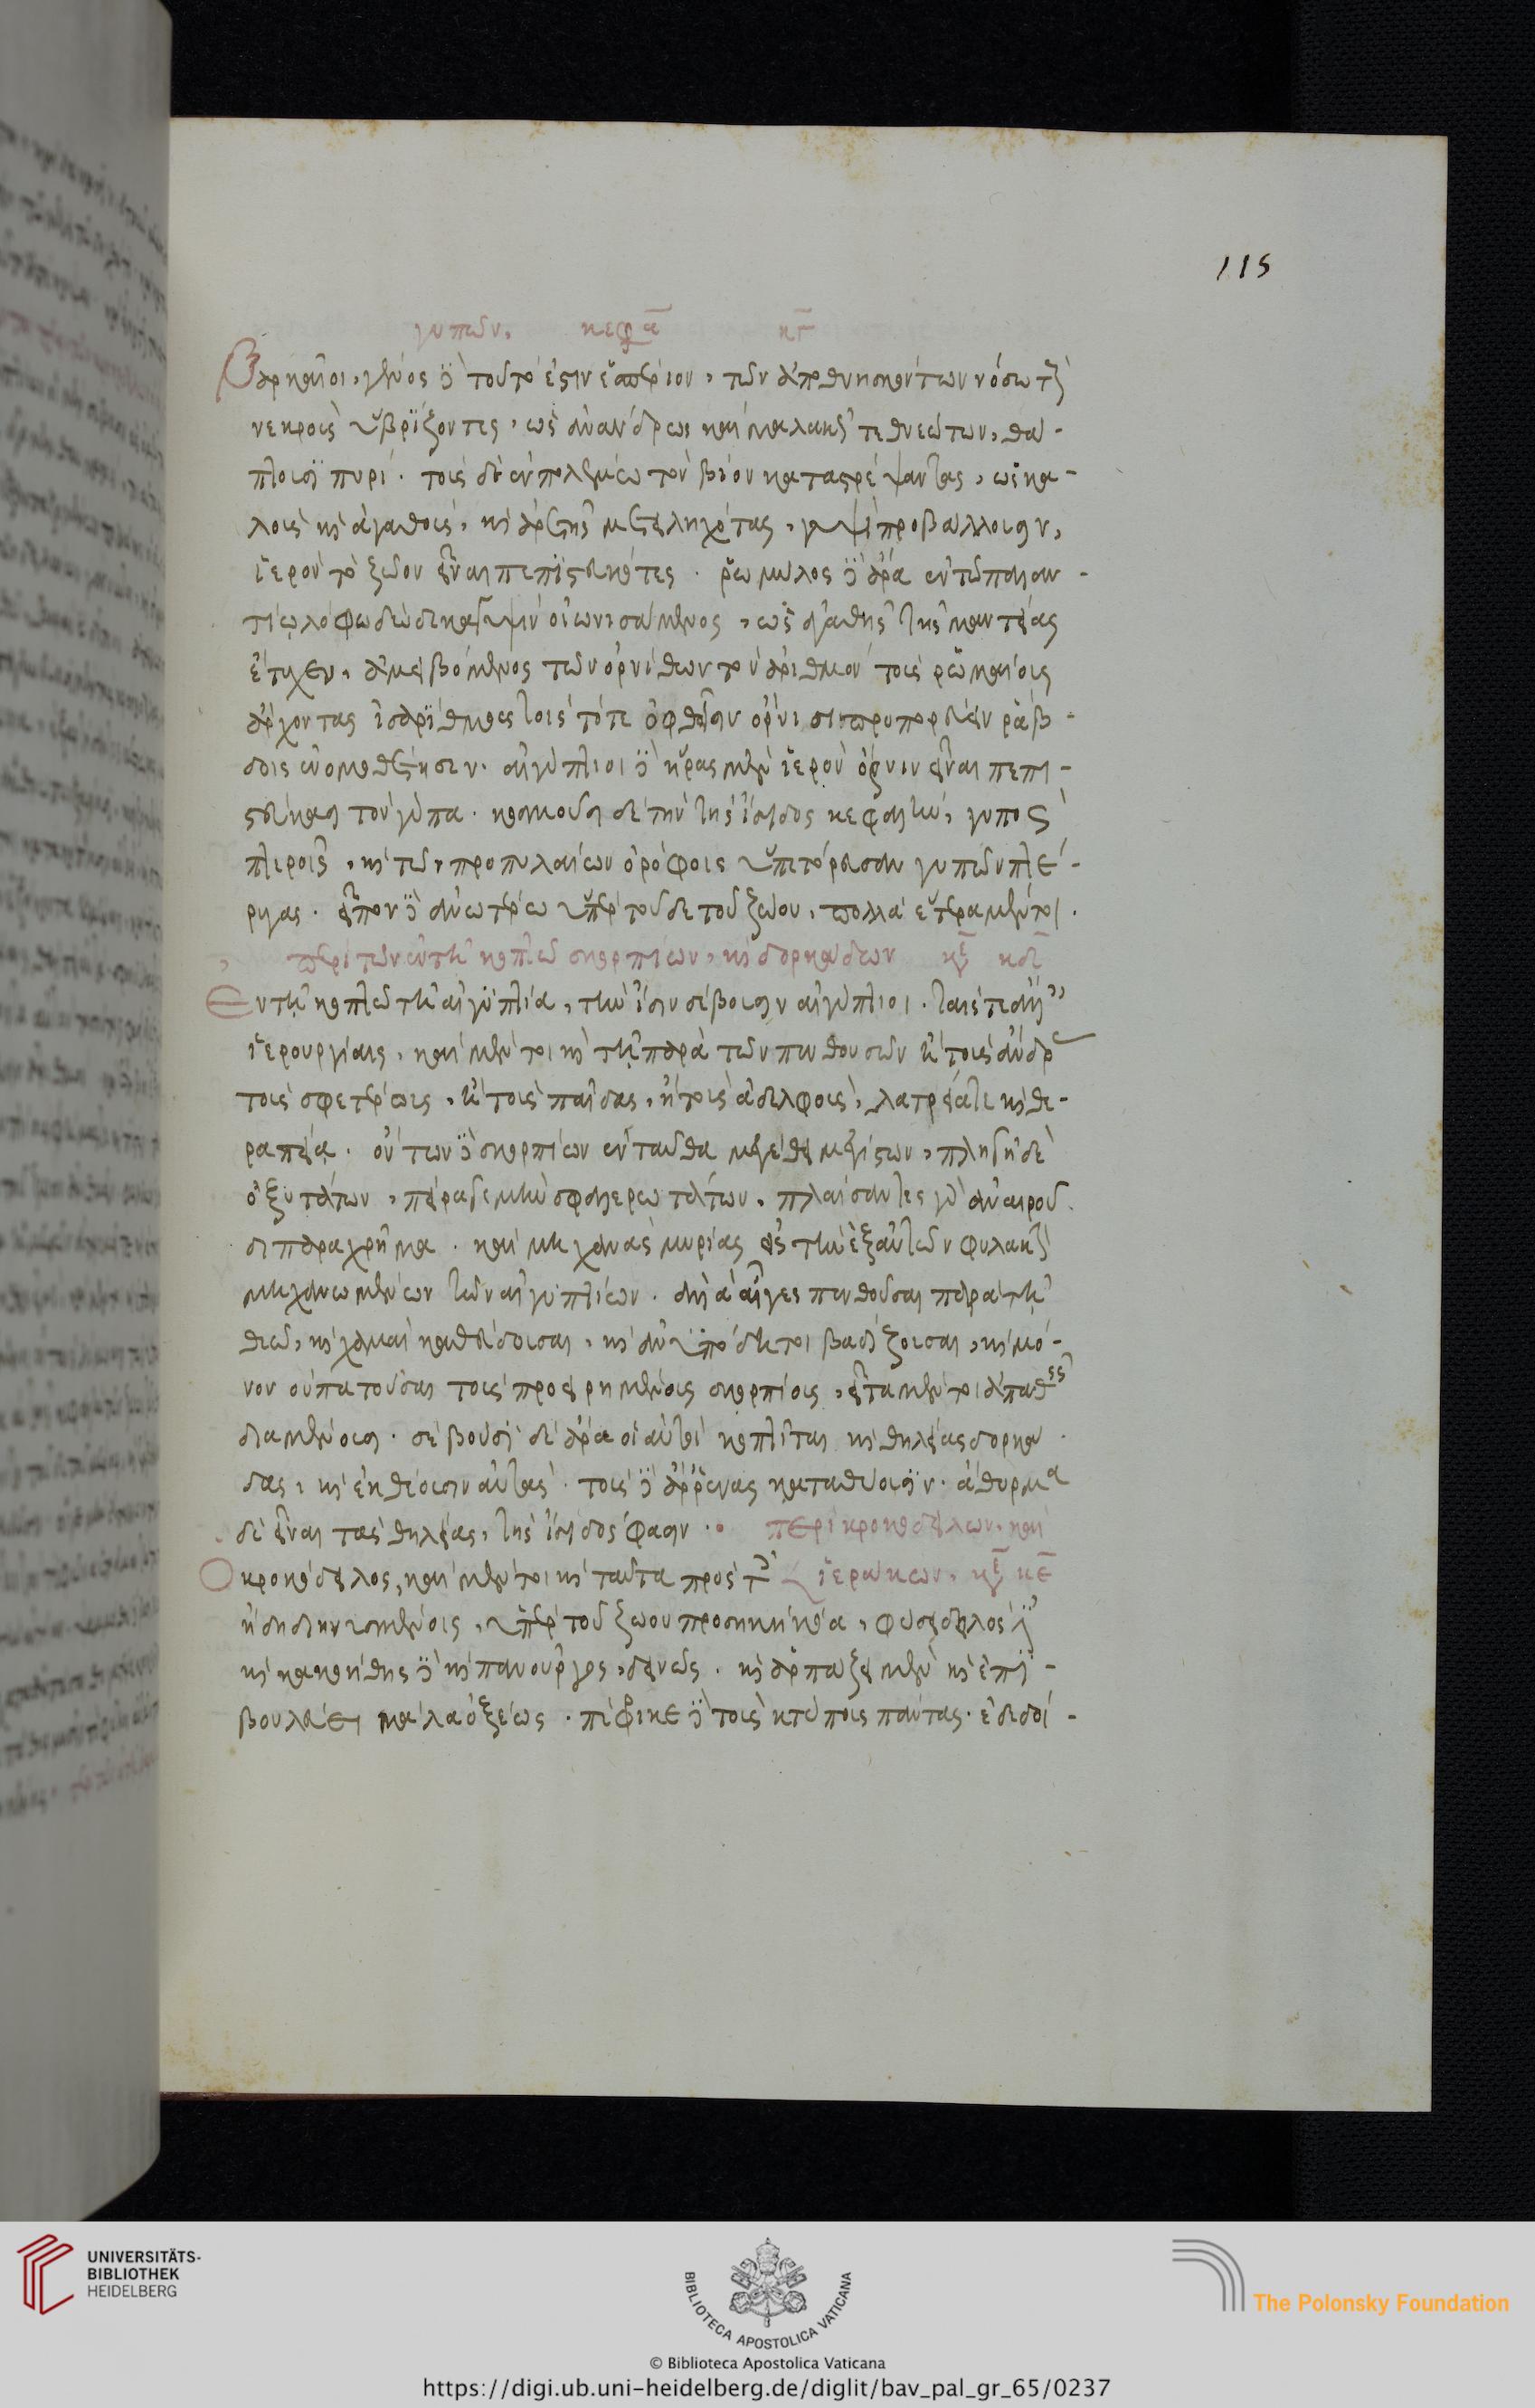 115
γυπῶν. κεφά κγ
Βαρκαῖοι, γένος δὲ τοῦτό ἐστιν ἑσπέριον, τῶν ἀποθνησκόντων νόσω τοὺς
νεκροὺς ὑβρίζοντες, ὡς ἀνάνδρως καὶ μαλακῶς τεθνεώτων, θά-
πτουσι πυρί. τοὺς δὲ ἐν πολέμω τὸν βίον καταστρέψαντας, ὡς κα-
λοὺς καὶ ἀγαθοὺς, καὶ ἀρετῆς μετειληχότας, γυψὶ προβάλλουσιν,
ἱερὸν τὸ ζῶον εἶναι πεπιστευκότες. ῥωμύλος δὲ ἄρα ἐν τῶ παλαν-
τίω λόφω δώδεκα γυψὶν οἰωνισάμενος, ὡς ἀγαθῆς τῆς μαντείας
ἔτυχεν, ἀμειβόμενος τῶν ὀρνίθων τὸν ἀριθμὸν τοῖς ῥωμαίοις
ἄρχοντας ἰσαρίθμους τοῖς τότε ὀφθεῖσιν ὄρνισι προπορεύειν ῥάβ-
δους ἐνομοθέτησεν. αἰγύπτιοι δὲ ἥρας μὲν ἱερὸν ὄρνιν εἶναι πεπι-
στεύκασι τὸν γύπα. κοσμοῦσι δὲ τὴν τῆς ἴσιδος κεφαλὴν, γυπὸς
πτεροῖς, καὶ τῶν προπυλαίων ὀρόφοις ὑπετόρευσαν γυπῶν πτέ-
ρυγας. εἶπον δὲ ἀνωτέρω ὑπὲρ τοῦδε τοῦ ζώου, πολλὰ ἕτερα μέντοι.
περὶ τῶν ἐν τῆ κοπτῶ σκορπίων, καὶ δορκάδων κε κδ
Ἐν τῆ κοπτῶ τῆ αἰγυπτία, τὴν ἶσιν σέβουσιν αἰγύπτιοι. ταῖς τε ἄλλαις
ἱερουργίαις, καὶ μέντοι καὶ τῆ παρὰ τῶν πενθουσῶν ἢ τοὺς ἄνδρας
τοὺς σφετέρους, ἢ τοὺς παῖδας, ἢ τοὺς ἀδελφοὺς, λατρεία τε καὶ θε-
ραπεία. ὄντων δὲ σκορπίων ἐνταῦθα μεγέθει μεγίστων, πληγὴν δὲ
ὀξυτάτων, πεῖράν γε μὴν σφαλερωτάτων, παίσαντες γὰρ ἀναιροῦ
σι παραχρῆμα. καὶ μηχανὰς μυρίας εἰς τὴν ἐξ αὐτῶν φυλακὴν
μηχανωμένων τῶν αἰγυπτίων. ἀλλὰ αἵγε πενθοῦσαι παρὰ τῆ
θεῶ, καὶ χαμαὶ καθεύδουσαι, καὶ ἀνυπόδητοι βαδίζουσαι, καὶ μό-
νον οὐ πατοῦσαι τοὺς προειρημένους σκορπίους, εἶτα μέντοι ἀπαθεῖς
διαμένουσι. σέβουσι δὲ ἄρα οἱ αὐτοὶ κοπτῖται καὶ θηλείας δορκά
δας, καὶ ἐκθεοῦσιν αὐτάς. τοὺς δὲ ἄρρενας καταθύουσιν. ἄθυρμα
δὲ εἶναι τὰς θηλείας, τῆς ἴσιδός φασιν. περὶ κροκοδείλων, καὶ
Ὁ κροκόδειλος, καὶ μέντοι καὶ ταῦτα πρὸς τοῖς ἱεράκων, κε κε
ἤδη διηνυσμένοις, ὑπὲρ τοῦ ζώου προσήκουσα, φύσει δειλός ἐστι
καὶ κακοήθης δὲ καὶ πανοῦργος, δεινῶς. καὶ ἁρπάξαι μὲν καὶ ἐπι-
βουλεύει μάλα ὀξέως. πέφρικε δὲ τοὺς κτύπους πάντας. ἐδεδοί-
UNIVERSITÄTS-
BIBLIOTHEK
HEIDELBERG
BIBLIOTECA APOSTOLICA VATICANA
The Polonsky Foundation
© Biblioteca Apostolica Vaticana
https://digi.ub.uni-heidelberg.de/diglit/bav_pal_gr_65/0237